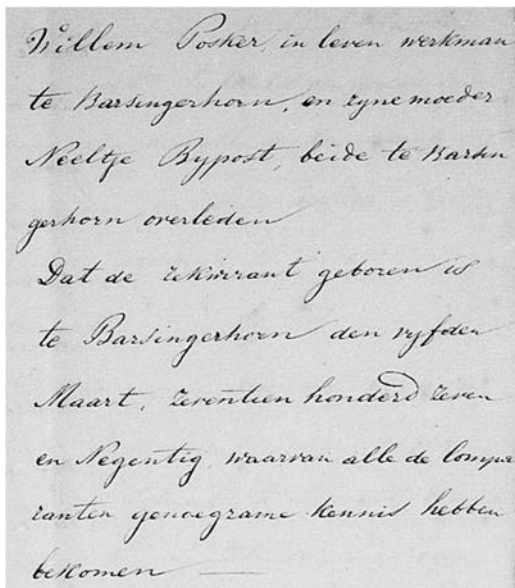 Willem Posker, in leven werkman
te Barsingerhorn, en zyne moeder
Neeltje Bypost, beide te Barsin
gerhorn overleden
Dat de rekwirant geboren is
te Barsingerhorn den vyfden
Maart, zeventien honderd zeven
en Negentig, waarvan alle de Compa
ranten genoegzame kennis hebben
bekomen —